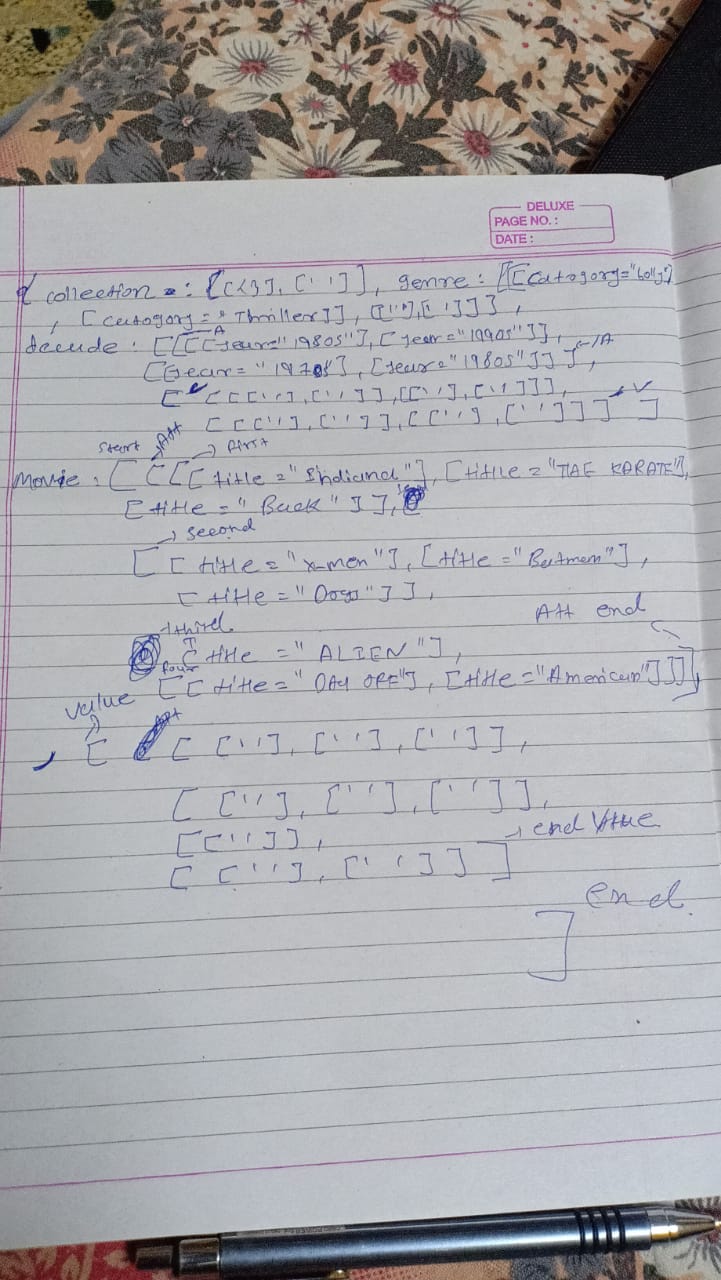 DELUXE
PAGE NO. :
DATE :
{ collection : [[<3], ['']], genre : [[[catogory="bolly"]
, [catogory = "Thriller]], [[''],['']]],
decude : [[[[year="1980s"], [year="1990s"]],
[[year="1970s"], [year="1980s"]]],
[[[[''], ['']], [[''], ['']]],
[[[''], ['']], [[''], ['']]]]]
Start Att first
Movie : [[[[title="Indiana"], [title="THE KARATE"],
[title="Back"]],
→ second
[[title="x-men"], [title="Batmen"],
[title="Dogo"]],
third Att end
[title="ALIEN"],
four
[[title="DAY ORE"], [title="American"]]],
value
, [ [[''], [''], ['']],
[[''], [''], ['']],
[['']],
→ end Value
[[''], ['']]]
end
]